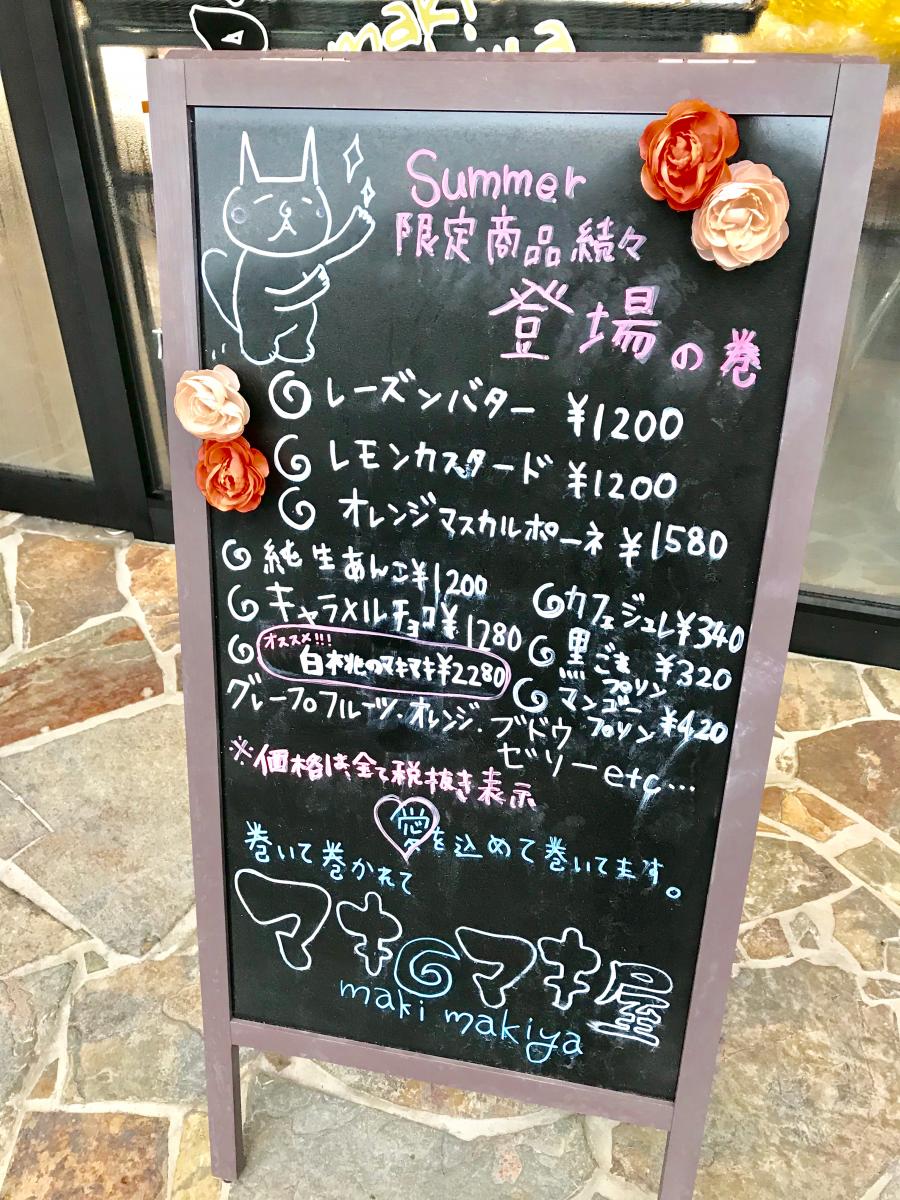 maki
makiya
Summer
限定商品続々
登場の巻
レーズンバター ¥1200
レモンカスタード ¥1200
オレンジマスカルポーネ ¥1580
純生あんこ¥1200
キャラメルチョコ¥1280
オススメ!!!
白桃のマキマキ¥2280
カフェジュレ¥340
黒ごまプリン ¥320
マンゴープリン ¥420
グレープフルーツ.オレンジ.ブドウ
ゼリーetc...
※価格は全て税抜き表示
愛を込めて巻いてます。
巻いて巻かれて
マキマキ屋
maki makiya